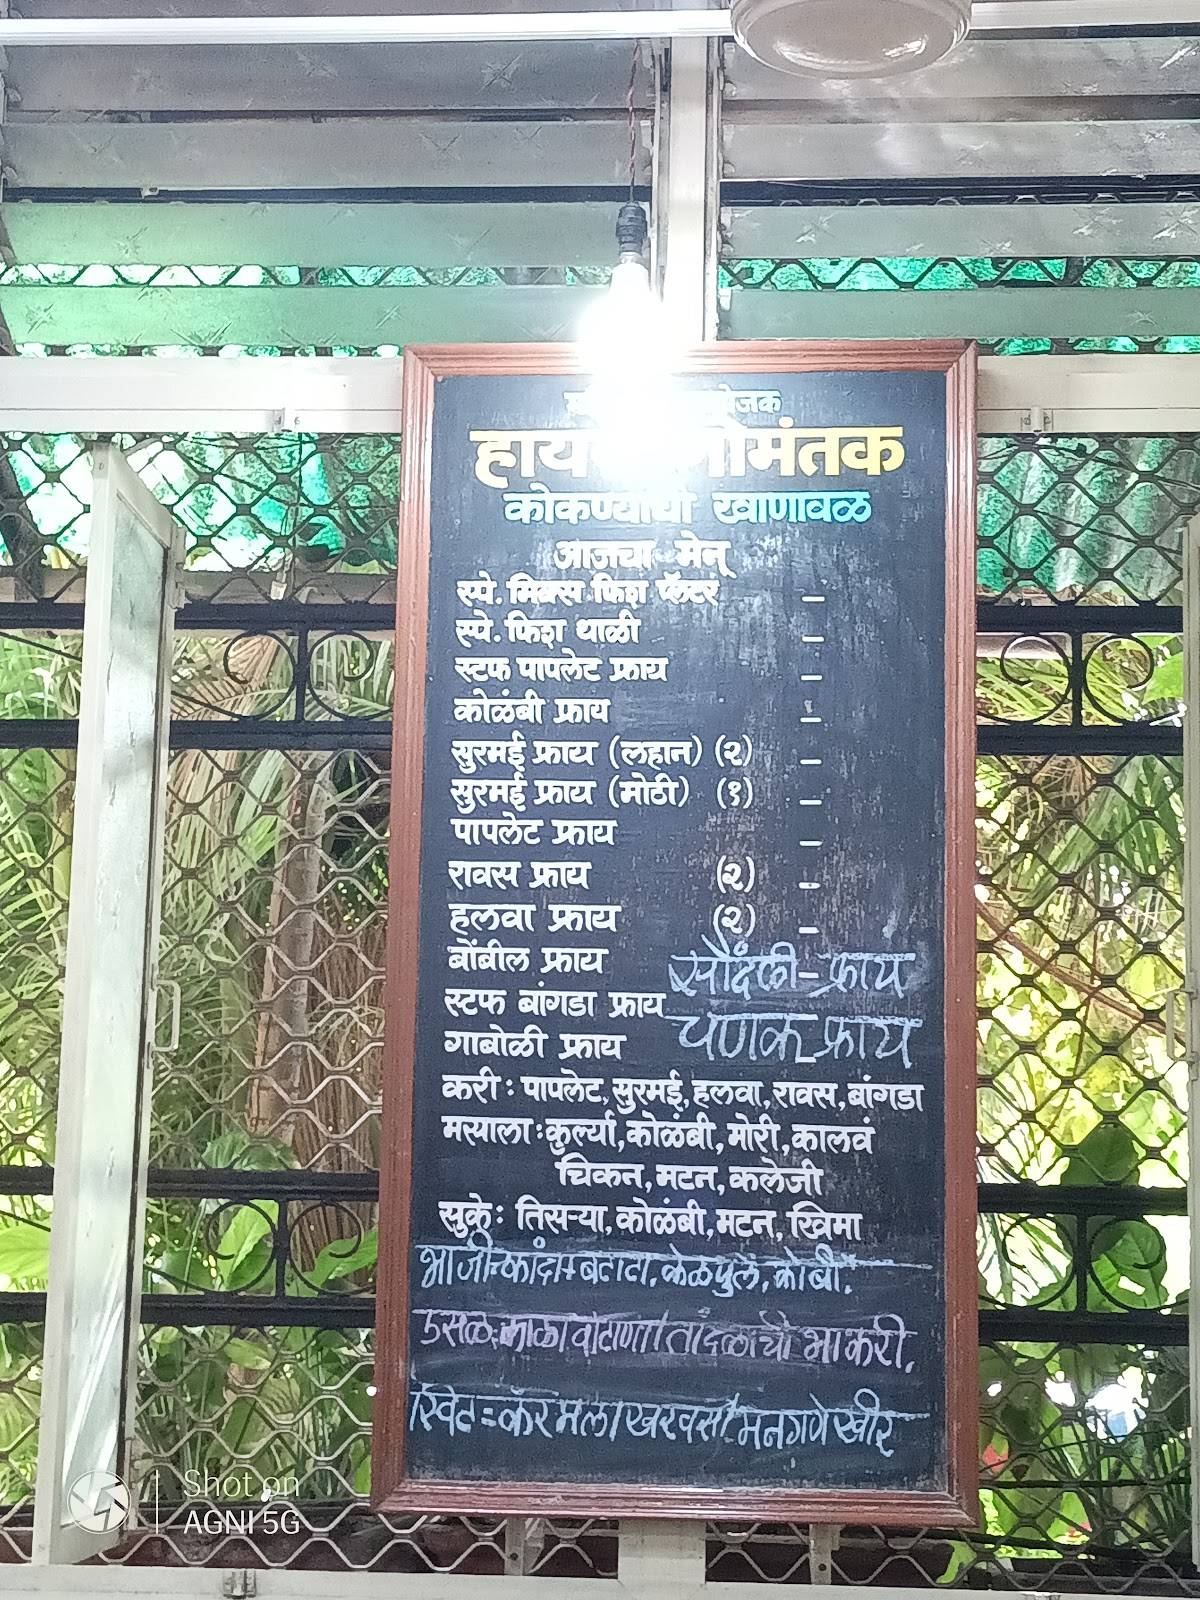 गोमंतक
कोकण्यांची खाणावळ
आजचा मेनू
स्पे. मिक्स फिश प्लॅटर –
स्पे. फिश थाळी –
स्टफ पापलेट फ्राय –
कोळंबी फ्राय –
सुरमई फ्राय (लहान) (२) –
सुरमई फ्राय (मोठी) (१) –
पापलेट फ्राय –
रावस फ्राय (२) –
हलवा फ्राय (२) –
बोंबील फ्राय सौंदळी – फ्राय
स्टफ बांगडा फ्राय
गाबोळी फ्राय चणक – फ्राय
करी : पापलेट, सुरमई, हलवा, रावस, बांगडा
मसाला : कुर्ल्या, कोळंबी, मोरी, कालवं
चिकन, मटन, कलेजी
सुके : तिसऱ्या, कोळंबी, मटन, खिमा
भाजी = कांदा + बटाटा, केळफुल, कोबी.
उसळ, काळा वाटाणा / तांदळाची भाकरी.
स्विट = कॅरमला / खरवस / मनगणे खीर
Shot on
AGNI 5G